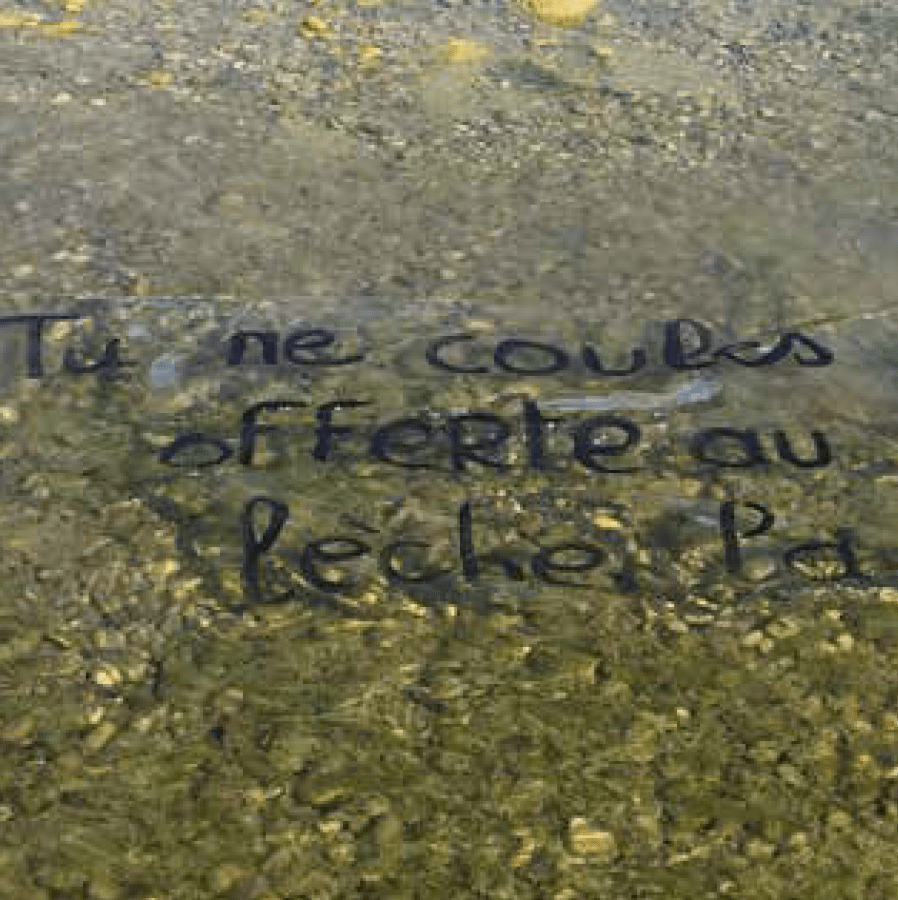 Tu ne coules
offeRte au
pèche, Pa